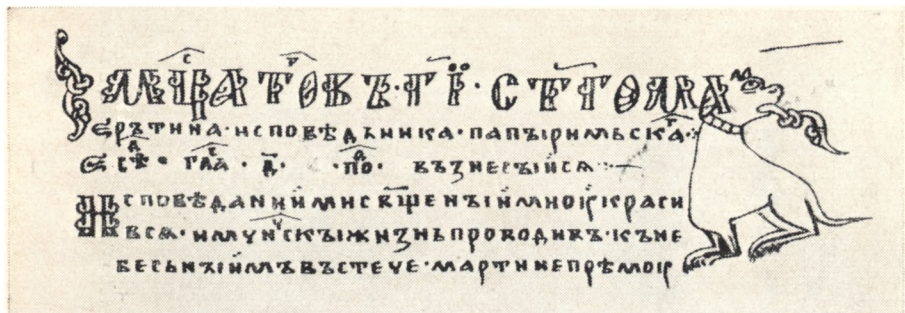 МЦАТОВЪ·Г҃Ї·СТ҃ГОМА
ЄРЪТИНА·ИСПОВѢДЬНИКА·ПАПЪІРИМЬСКА·
ЄСѢ· ГЛА· Д҃· ·ПО· ВЪЗНЕСЪІИСѦ
ИСПОВѢДАНИИМИСВ҃ЩЕНЪІИМ КРАСИ
ВСѦ·ИМЧ҃НСКЪІЖИЗНЬПРОВОДИВЪ·КЪНЕ
БЕСЬНЪІИМЪВЪСТЕЧЕ·МАРТИНЕПРѢМО